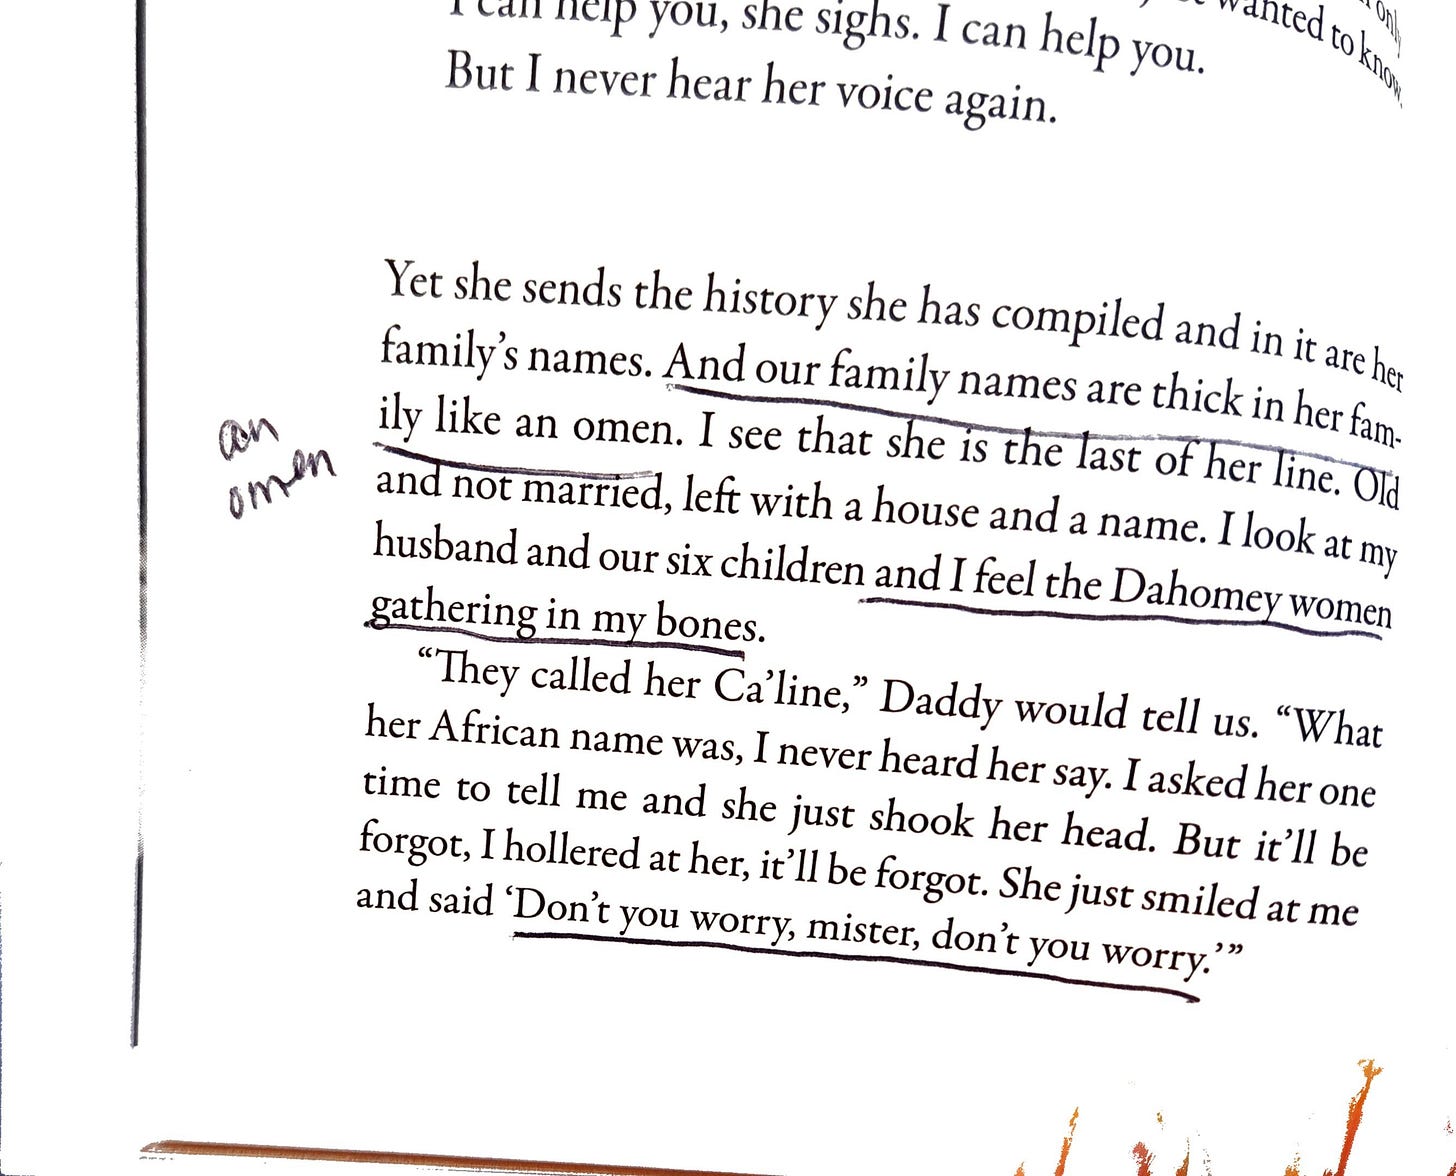 only
wanted to know.
I can help you, she sighs. I can help you.
But I never hear her voice again.
Yet she sends the history she has compiled and in it are her
family's names. And our family names are thick in her fam-
ily like an omen. I see that she is the last of her line. Old
and not married, left with a house and a name. I look at my
husband and our six children and I feel the Dahomey women
gathering in my bones.
"They called her Ca'line," Daddy would tell us. "What
her African name was, I never heard her say. I asked her one
time to tell me and she just shook her head. But it'll be
forgot, I hollered at her, it'll be forgot. She just smiled at me
and said 'Don't you worry, mister, don't you worry.'"
an
omen